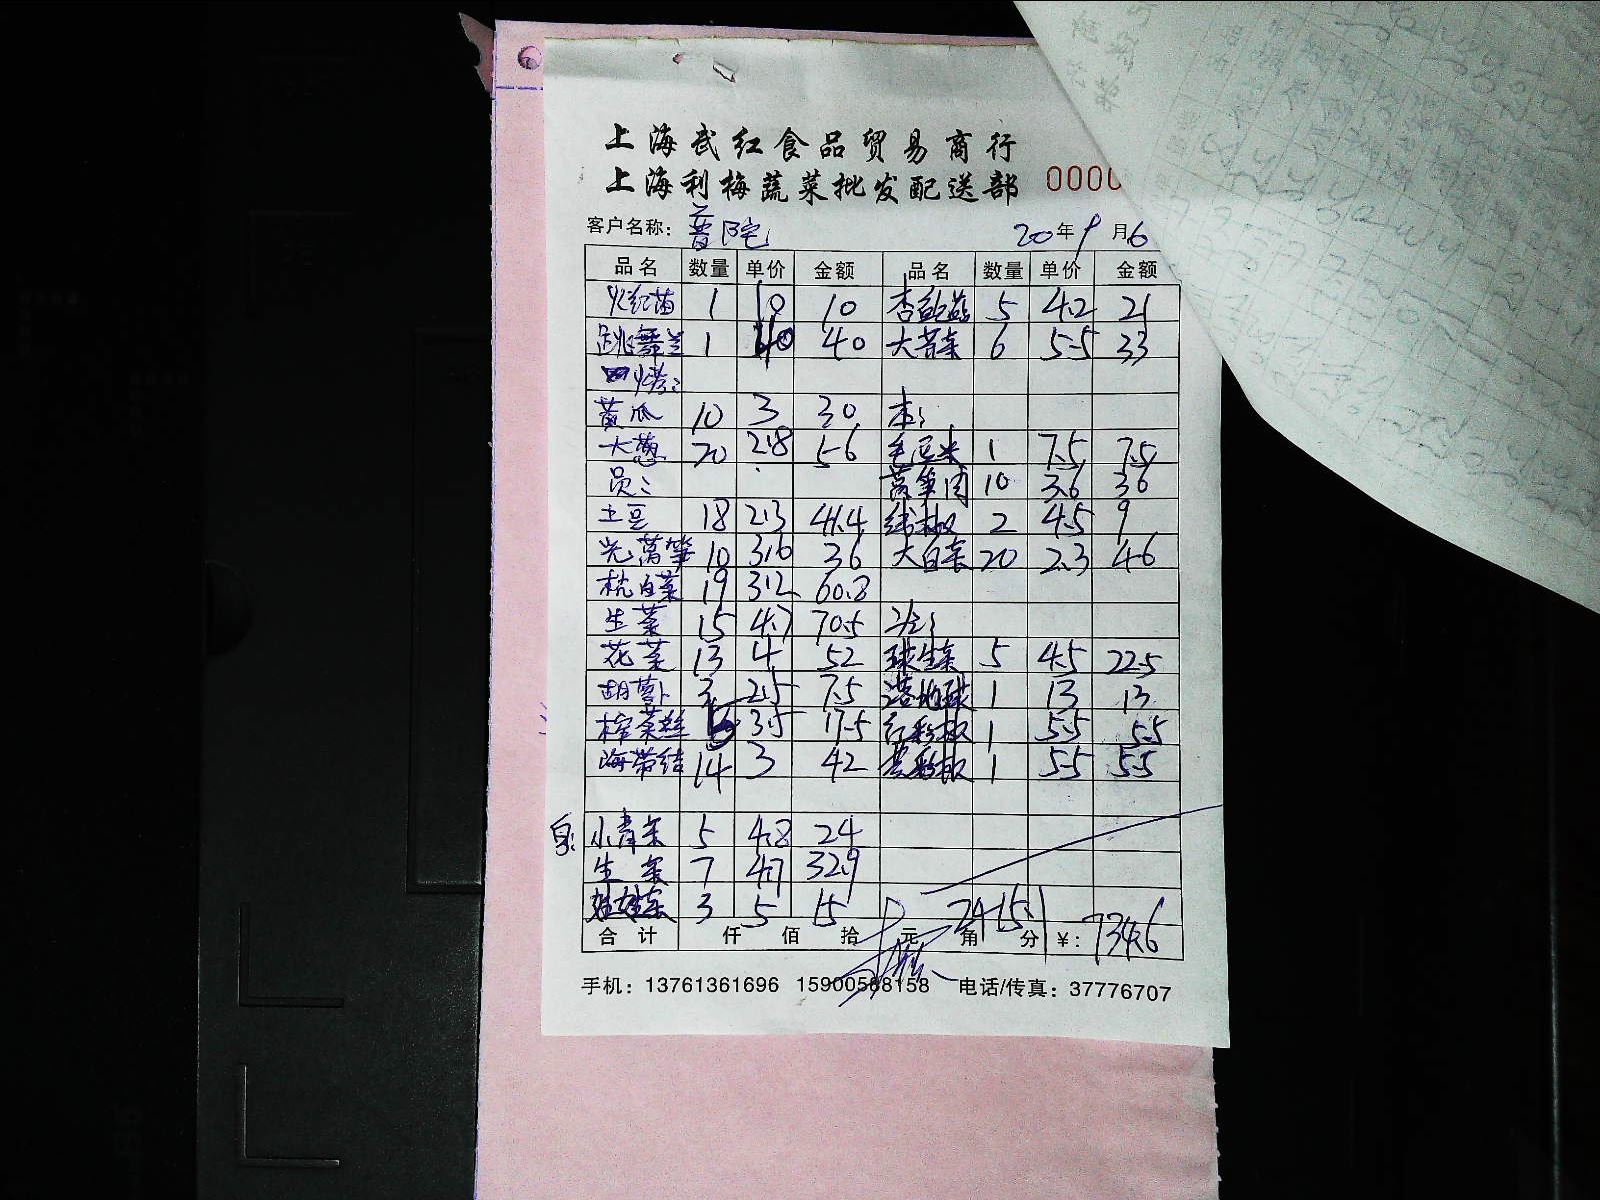 上海武红食品贸易商行
上海利梅蔬菜批发配送部 0000
客户名称: 普陀 20年9月6
品名 数量 单价 金额 品名 数量 单价 金额
1 10 10 杏鲍菇 5 4.2 21
跳舞兰 1 40 40 大芹菜 6 5.5 33
黄瓜 10 3 30 本:
大葱 20 2.8 56 毛豆米 1 7.5 7.5
员: 莴笋肉 10 3.6 36
土豆 18 2.3 41.4 线椒 2 4.5 9
光莴笋 10 3.6 36 大白菜 20 2.3 46
杭白菜 19 3.2 60.8
生菜 15 4.7 70.5
花菜 13 4 52 球生菜 5 4.5 22.5
胡萝卜 3 2.5 7.5 1 13 13
榨菜丝 5 3.5 17.5 红彩椒 1 5.5 5.5
海带结 14 3 42 黄彩椒 1 5.5 5.5
小青菜 5 4.8 24
生菜 7 4.7 32.9
娃娃菜 3 5 15
合计 仟 佰 拾 元 角 分 ¥: 734.6
手机: 13761361696 15900568158 电话/传真: 37776707